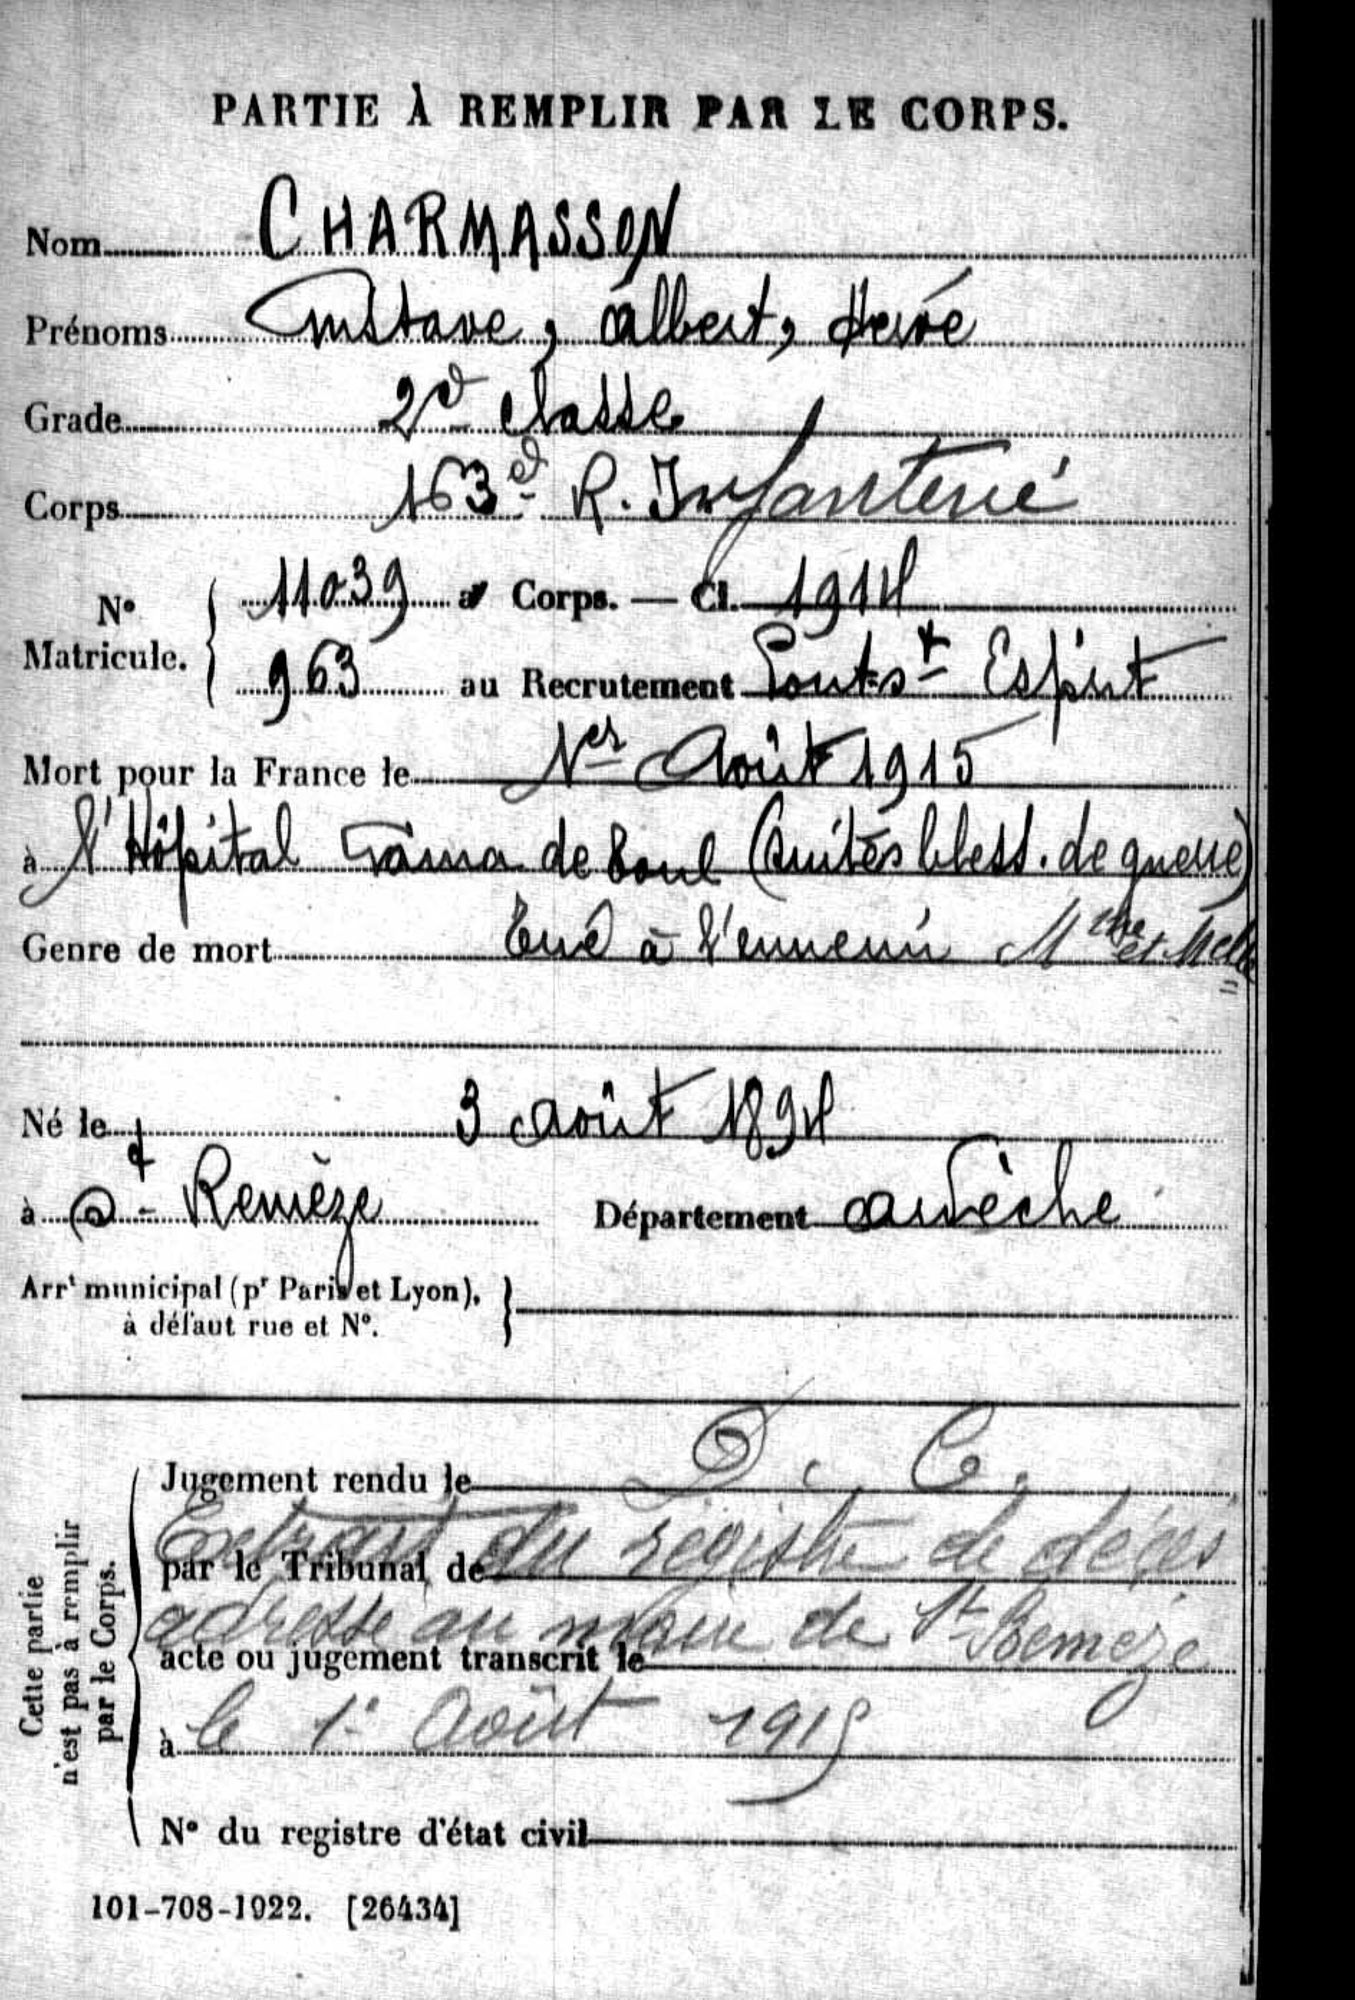 PARTIE À REMPLIR PAR LE CORPS.
Nom CHARMASSON
Prénoms Gustave, Albert, Hervé
Grade 2d classe
Corps 163e R. Infanterie
No Matricule. { 11039 au Corps. — Cl. 1914
963 au Recrutement Pont-St Esprit
Mort pour la France le 1er Août 1915
à l'Hôpital Gama de Toul (suites bless. de guerre)
Genre de mort Tué à l'ennemi
Né le 3 août 1894
à St Remèze Département Ardèche
Arrt municipal (pr Paris et Lyon), à défaut rue et No. }
Cette partie n'est pas à remplir par le Corps.
Jugement rendu le D. C.
Extrait du registre de décès
par le Tribunal de
adressé au maire de St Remèze
acte ou jugement transcrit le
à le 1er Août 1915
No du registre d'état civil
101-708-1922. [26434]